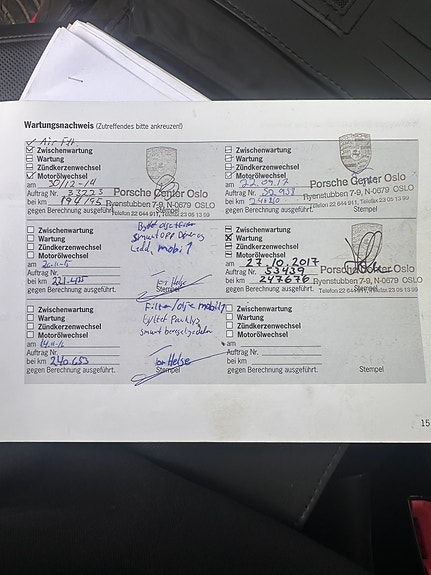 Wartungsnachweis (Zutreffendes bitte ankreuzen!)
Air Filt.
Zwischenwartung
Wartung
Zündkerzenwechsel
Motorölwechsel
am 30/12-14
Auftrag Nr. 33223
bei km 194195
gegen Berechnung ausgeführt.
Porsche Center Oslo
Ryenstubben 7-9, N-0679 OSLO
Telefon 22 644 911, Telefax 23 05 13 99
Stempel
Zwischenwartung
Wartung
Zündkerzenwechsel
Motorölwechsel
am 22.09.17
Auftrag Nr. 52958
bei km
gegen Berechnung ausgeführt.
Porsche Center Oslo
Ryenstubben 7-9, N-0679 OSLO
Telefon 22 644 911, Telefax 23 05 13 99
Stempel
Zwischenwartung
Wartung
Zündkerzenwechsel
Motorölwechsel
am 20-11-15
Auftrag Nr.
bei km 221.425
gegen Berechnung ausgeführt.
Byttet olje filter
smurt opp
Ledd, mobil 1
Jon Helse
Stempel
Zwischenwartung
Wartung
Zündkerzenwechsel
Motorölwechsel
am 27.10.2017
Auftrag Nr. 53439
bei km 247676
gegen Berechnung ausgeführt.
Porsche Center Oslo
Ryenstubben 7-9, N-0679 OSLO
Telefon 22 644 911, Telefax 23 05 13 99
Stempel
Zwischenwartung
Wartung
Zündkerzenwechsel
Motorölwechsel
am 14.11-16
Auftrag Nr.
bei km 240.653
gegen Berechnung ausgeführt.
Filter/olje mobil 1
byttet
smurt
Jon Helse
Stempel
Zwischenwartung
Wartung
Zündkerzenwechsel
Motorölwechsel
am
Auftrag Nr.
bei km
gegen Berechnung ausgeführt.
Stempel
15